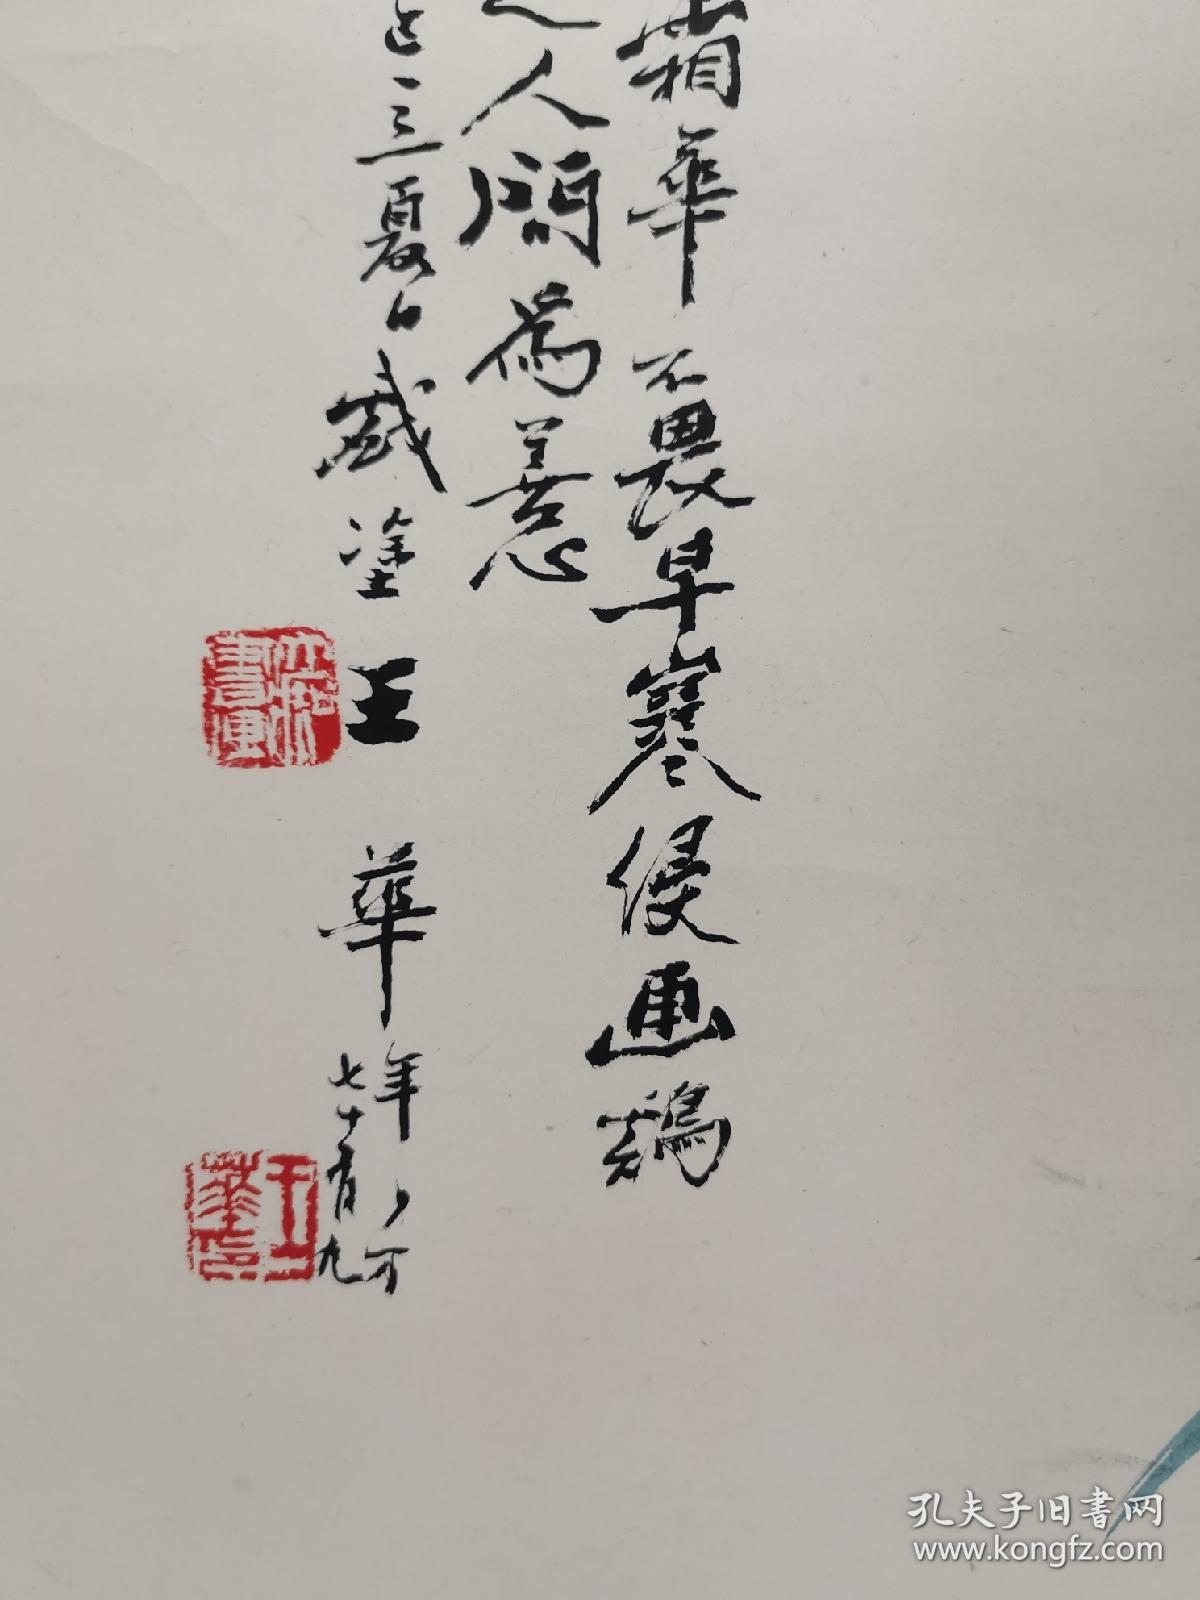 霜華不畏早寒侵画鷄
人間為善
三夏日戯塗王華年七十有九
王華印
孔夫子旧书网
www.kongfz.com